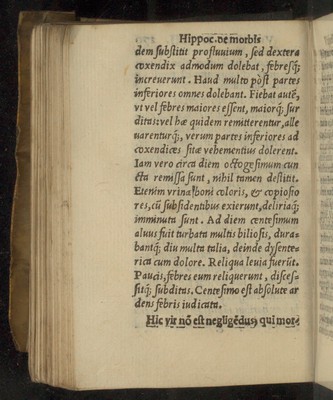 Hippoc. de morbis
dem substitit profluuium, sed dextera
coxendix admodum dolebat, febresq;
increuerunt. Haud multo pòst partes
inferiores omnes dolebant. Fiebat autē,
vt vel febres maiores essent, maiorq; sur
ditas: vel hæ quidem remitterentur, alle
uarenturq;, verum partes inferiores ad
coxendices sitæ vehementius dolerent.
Iam vero circa diem octogesimum cun
cta remissa sunt, nihil tamen destitit.
Etenim vrinæ boni coloris, & copiosio
res, cū subsidentibus exierunt, deliriaq;
imminuta sunt. Ad diem centesimum
aluus fuit turbata multis biliosis, dura-
bantq; diu multa talia, deinde dysente-
rica cum dolore. Reliqua leuia fuerūt.
Paucis, febres eum reliquerunt, disces-
sitq; surditas. Centesimo est absolute ar
dens febris iudicata.
Hic vir nō est negligēdus, qui mor-